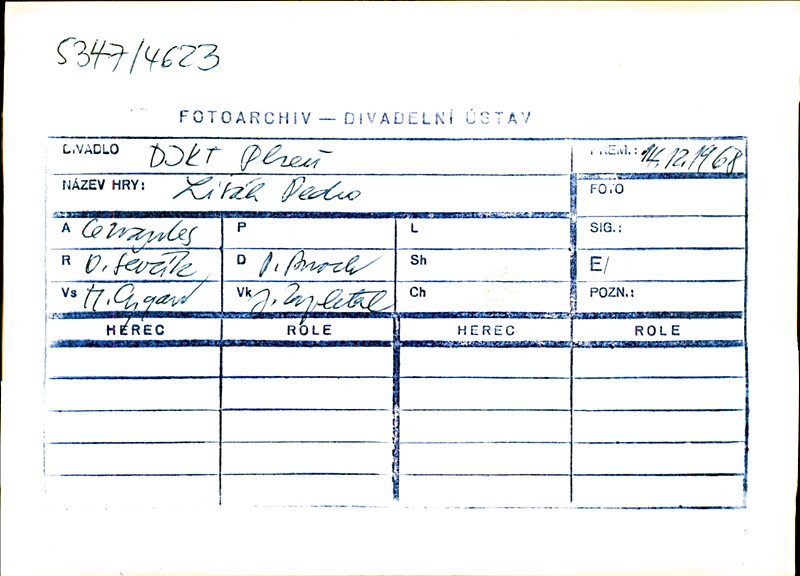 5347/4623
FOTOARCHIV — DIVADELNÍ ÚSTAV
DIVADLO DJKT Plzeň PREM.: 14.12.1968
NÁZEV HRY: Lišák Pedro FOTO
A Cervantes P L SIG.:
R O. Ševčík D Sh E/
Vs M. Cygan Vk J. Zapletal Ch POZN.:
HEREC ROLE HEREC ROLE